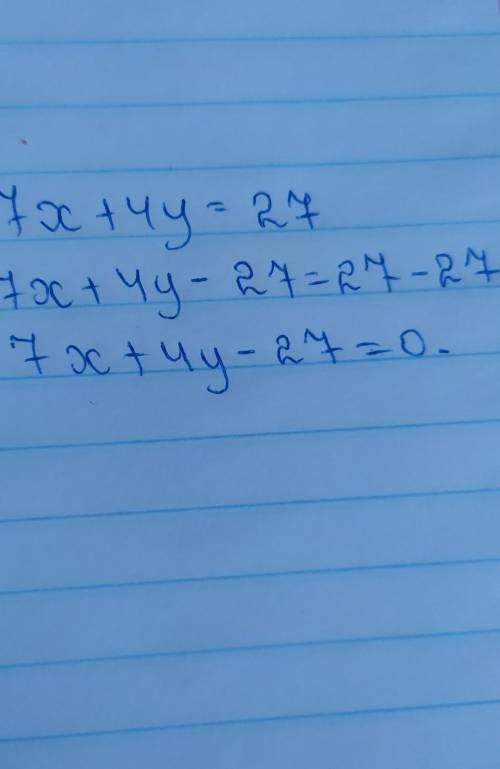 7x + 4y = 27
7x + 4y - 27 = 27 - 27
7x + 4y - 27 = 0.